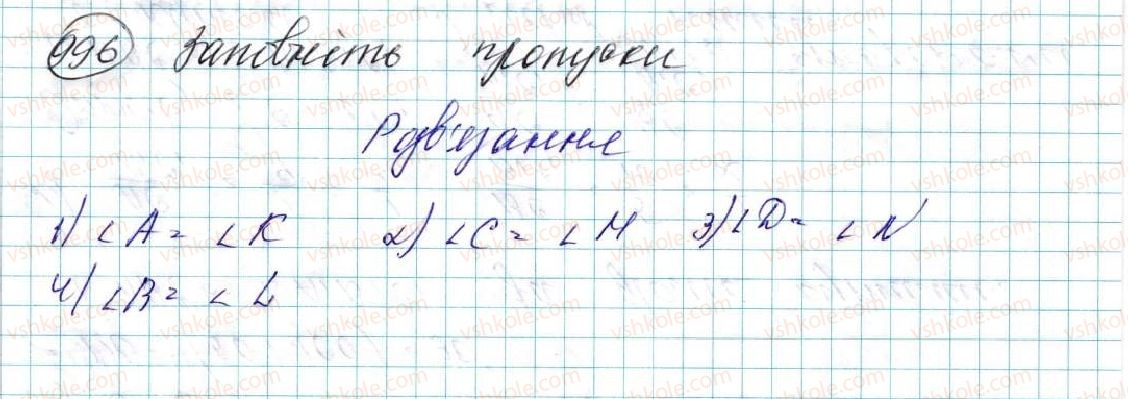 996 Заповніть пропуски
Розв'язання
1) ∠A = ∠K 2) ∠C = ∠M 3) ∠D = ∠N
4) ∠B = ∠L